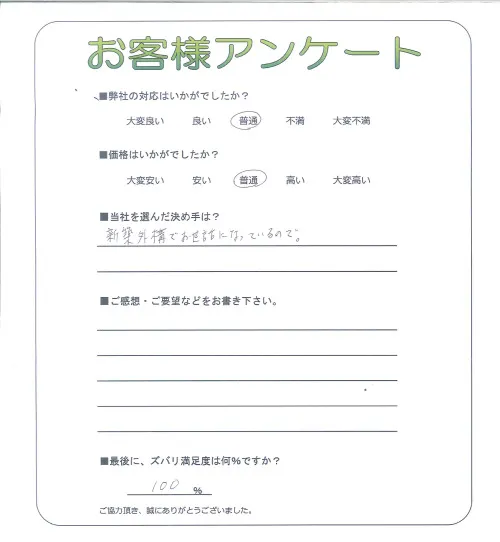 お客様アンケート
■弊社の対応はいかがでしたか？
大変良い 良い 普通 不満 大変不満
■価格はいかがでしたか？
大変安い 安い 普通 高い 大変高い
■当社を選んだ決め手は？
新築外構でお世話になっているので。
■ご感想・ご要望などをお書き下さい。
■最後に、ズバリ満足度は何％ですか？
100 %
ご協力頂き、誠にありがとうございました。